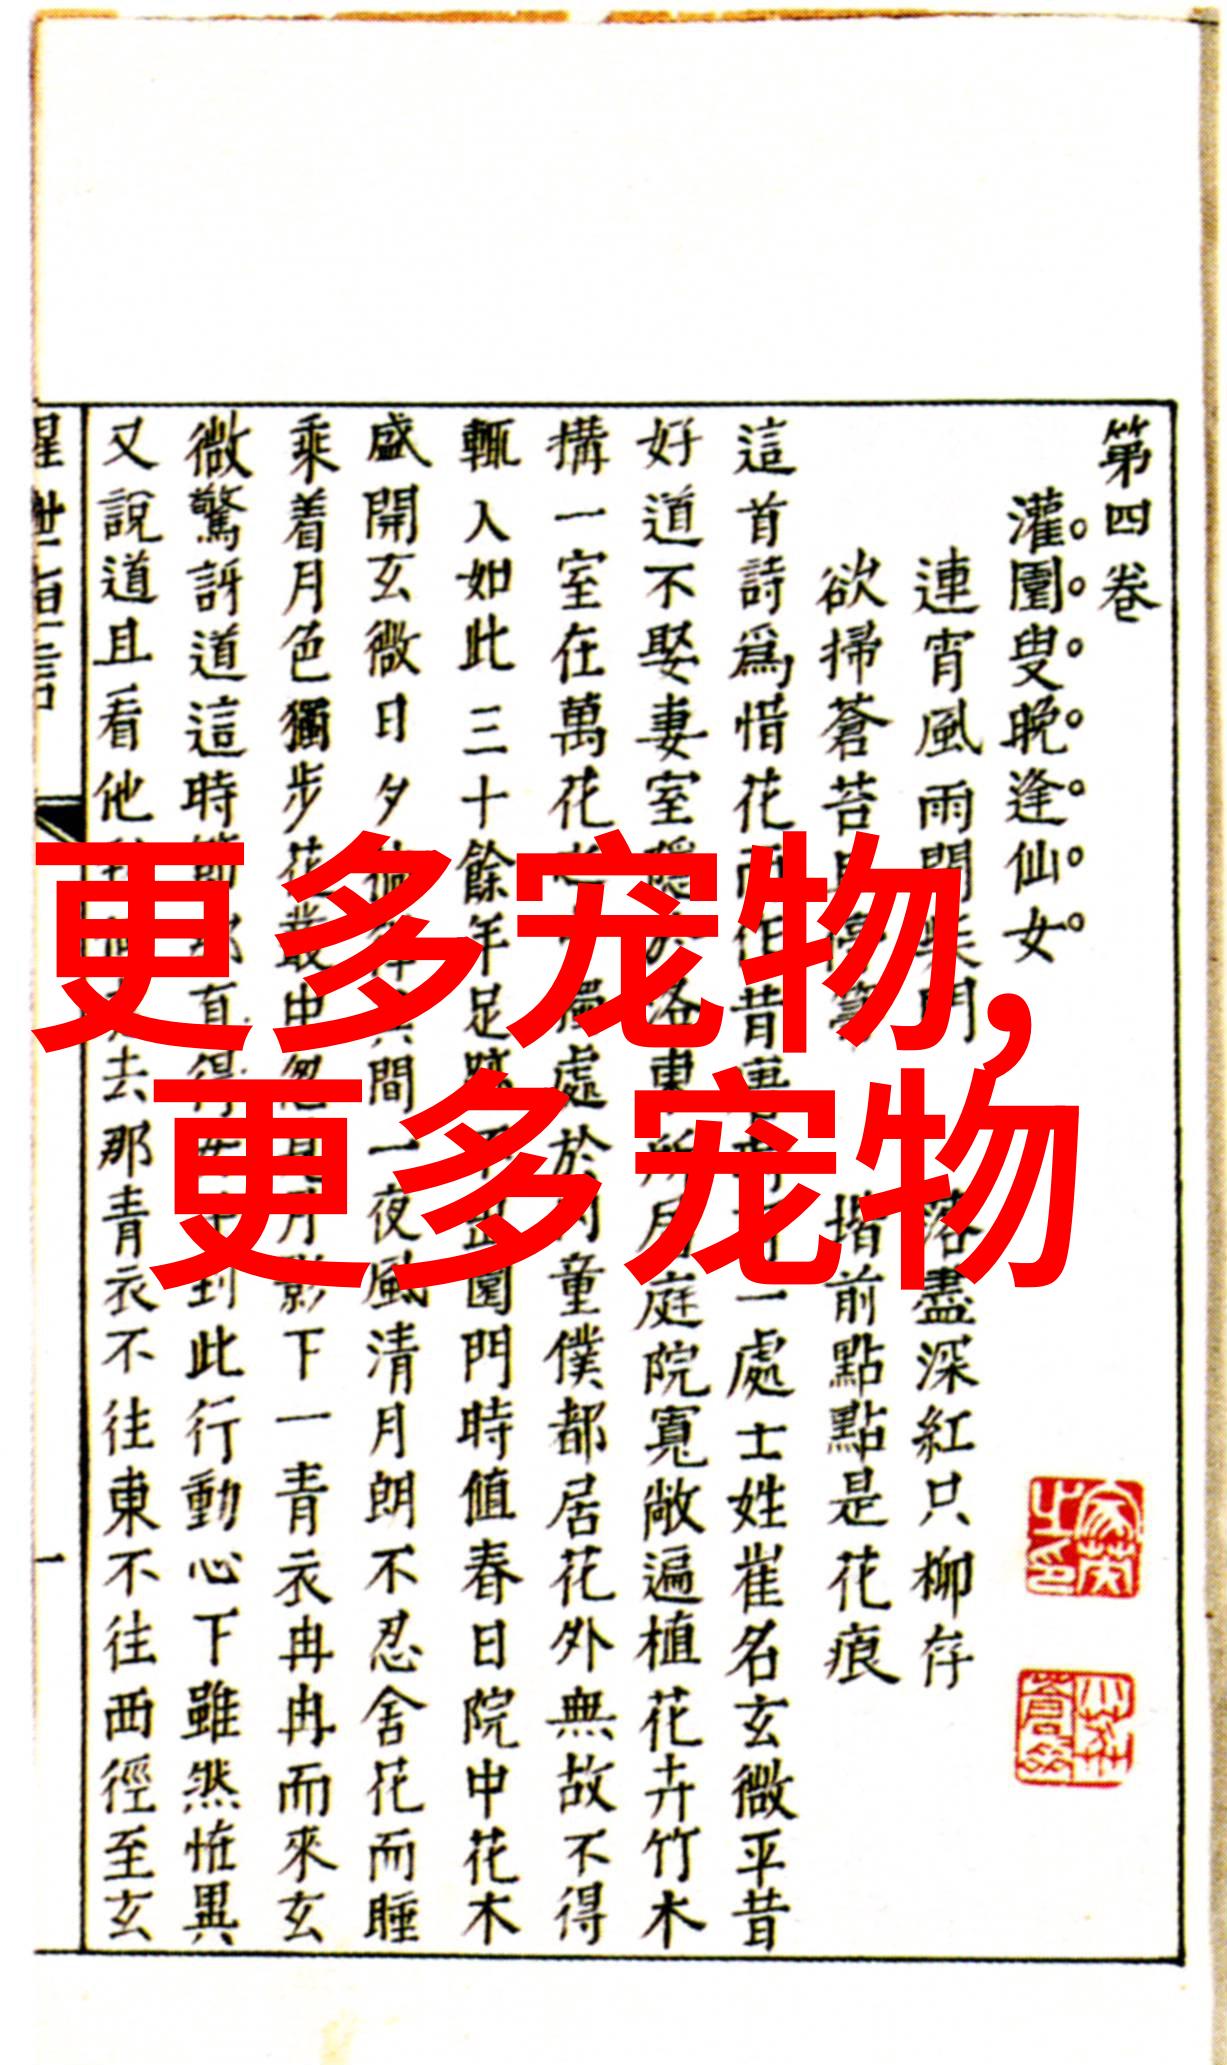 第四卷
灌園叟晚逢仙女
連宵風雨閉柴門 落盡深紅只柳存
欲掃蒼苔且停 堦前點點是花痕
這首詩爲惜花而作昔唐 一處士姓崔名玄微平昔
好道不娶妻室隱於洛東所 庭院寬敞遍植花卉竹木
搆一室在萬花 獨處於 童僕都居花外無故不得
輒入如此三十餘年足跡不 園門時值春日院中花木
盛開玄微日夕 其間一夜風清月朗不忍舍花而睡
乘着月色獨步花叢中忽見月影下一青衣冉冉而來玄
微驚訝道這時節那 有得 到此行動心下雖然怪異
又說道且看他 去那青衣不往東不往西徑至玄
醒世恒言
一
更多宠物,
更多宠物